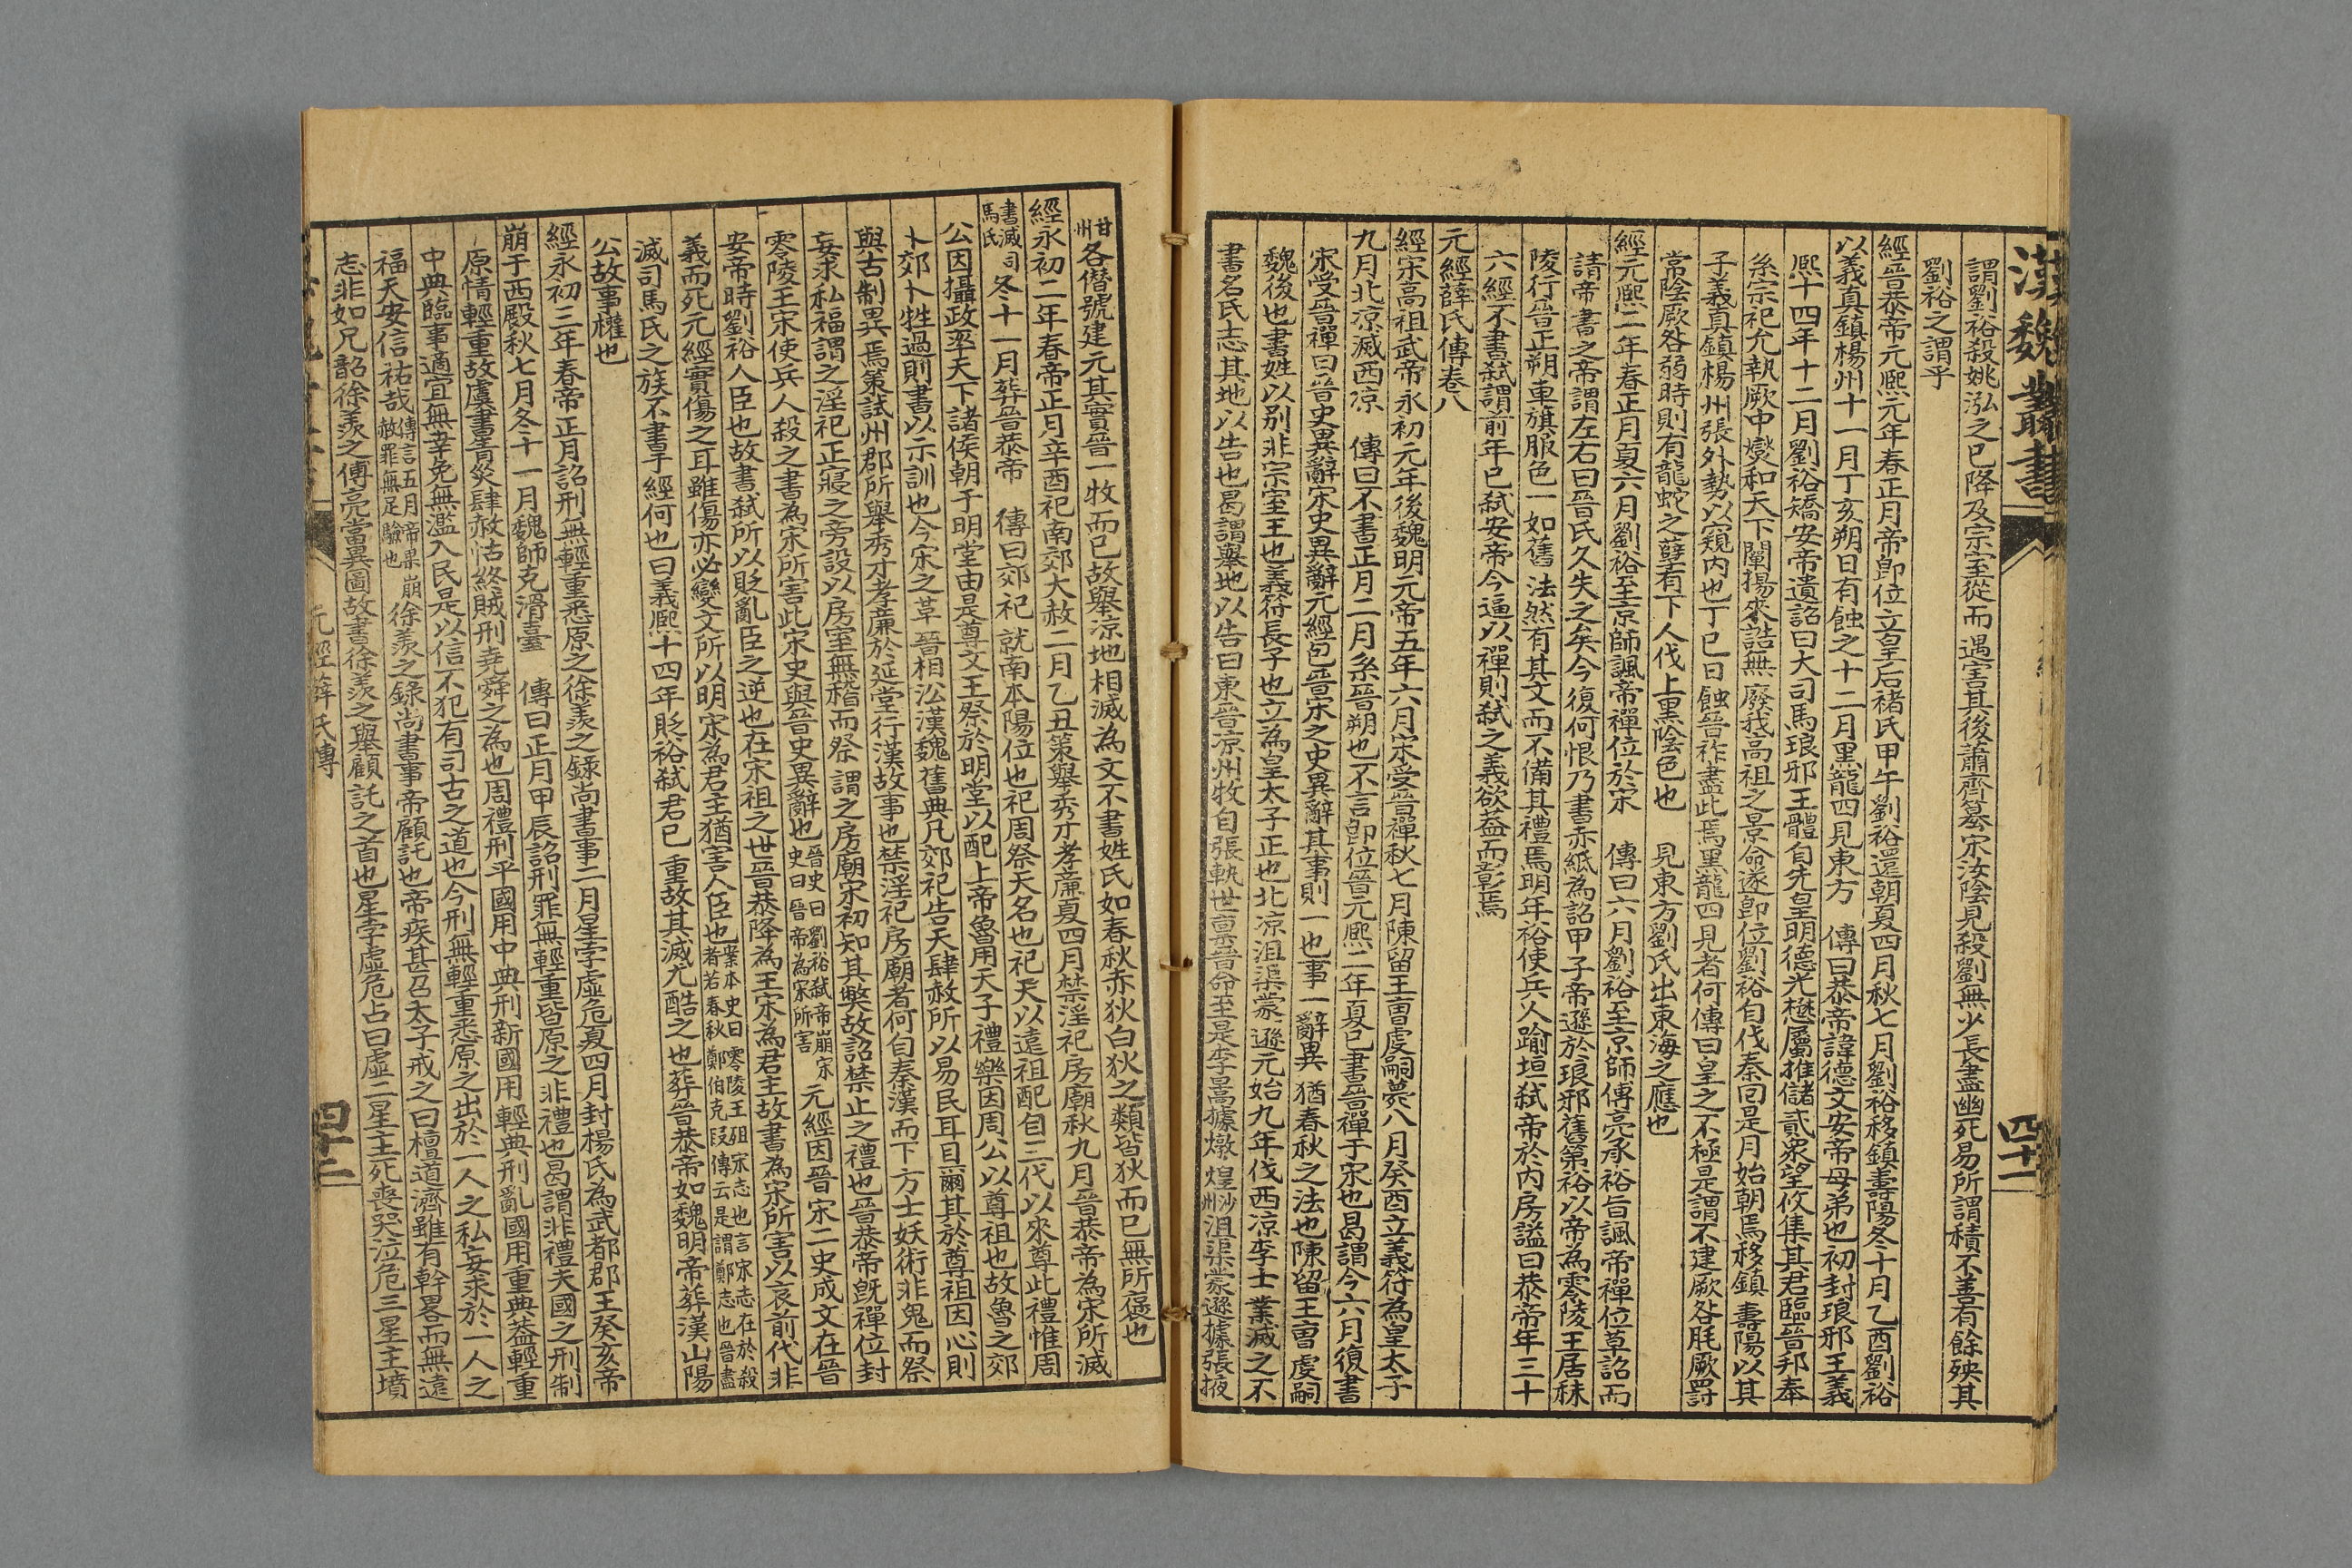 漢魏叢書
四十一
謂劉裕殺姚泓之已降及宗室從而遇害其後蕭齊簒宋汝陰見殺劉無少長盡幽死易所謂積不善有餘殃其
劉裕之謂乎
經晉恭帝元熙元年春正月帝卽位立皇后褚氏甲午劉裕還朝夏四月秋七月劉裕移鎮壽陽冬十月乙酉劉裕
以義真鎮楊州十一月丁亥朔日有蝕之十二月黑龍四見東方　傳曰恭帝諱德文安帝母弟也初封琅邪王義
熙十四年十二月劉裕矯安帝遺詔曰大司馬琅邪王體自先皇明德光懋屬推儲貳衆望攸集其君臨晉邦奉
系宗祀允執厥中燮和天下闡揚來誥無廢我高祖之景命遂卽位劉裕自伐秦囘是月始朝焉移鎮壽陽以其
子義真鎮楊州張外勢以窺內也丁巳日蝕晉祚盡此焉黑龍四見者何傳曰皇之不極是謂不建厥咎眊厥罰
常陰厥咎弱時則有龍蛇之孽有下人伐上黑陰色也　見東方劉氏出東海之應也
經元熙二年春正月夏六月劉裕至京師諷帝禪位於宋　傳曰六月劉裕至京師傅亮承裕旨諷帝禪位草詔而
請帝書之帝謂左右曰晉氏久失之矣今復何恨乃書赤紙為詔甲子帝遜於琅邪舊第裕以帝為零陵王居秣
陵行晉正朔車旗服色一如舊法然有其文而不備其禮焉明年裕使兵人踰垣弒帝於內房謚曰恭帝年三十
六經不書弒謂前年已弒安帝今逼以禪則弒之義欲葢而彰焉
元經薛氏傳卷八
經宋高祖武帝永初元年後魏明元帝五年六月宋受晉禪秋七月陳留王曹虔嗣薨八月癸酉立義符為皇太子
九月北凉滅西凉　傳曰不書正月二月系晉朔也不言卽位晉元熙二年夏已書晉禪于宋也曷謂今六月復書
宋受晉禪曰晉史異辭宋史異辭元經包晉宋之史異辭其事則一也事一辭異猶春秋之法也陳留王曹虔嗣
魏後也書姓以别非宗室王也義符長子也立為皇太子正也北凉沮渠蒙遜元始九年伐西凉李士業滅之不
書名氏志其地以告也曷謂舉地以告曰東晉凉州牧自張軌世禀晉命至是李暠據燉煌沙州沮渠蒙遜據張掖
甘州各僭號建元其實晉一牧而已故舉凉地相滅為文不書姓氏如春秋赤狄白狄之類皆狄而已無所褒也
經永初二年春帝正月辛酉祀南郊大赦二月乙丑策舉秀才孝亷夏四月禁淫祀房廟秋九月晉恭帝為宋所滅
書滅司馬氏冬十一月葬晉恭帝　傳曰郊祀就南本陽位也祀周祭天名也祀天以遠祖配自三代以來尊此禮惟周
公因攝政率天下諸侯朝于明堂由是尊文王祭於明堂以配上帝魯用天子禮樂因周公以尊祖也故魯之郊
卜郊卜牲過則書以示訓也今宋之革晉相㳂漢魏舊典凡郊祀告天肆赦所以易民耳目爾其於尊祖因心則
與古制異焉策試州郡所舉秀才孝廉於延堂行漢故事也禁淫祀房廟者何自秦漢而下方士妖術非鬼而祭
妄求私福謂之淫祀正寢之旁設以房室無稽而祭謂之房廟宋初知其弊故詔禁止之禮也晉恭帝旣禪位封
零陵王宋使兵人殺之書為宋所害此宋史與晉史異辭也晉史曰劉裕弒帝崩宋史曰晉帝為宋所害元經因晉宋二史成文在晉
安帝時劉裕人臣也故書弒所以貶亂臣之逆也在宋祖之世晉恭降為王宋為君主故書為宋所害以哀前代非
義而死元經實傷之耳雖傷亦必變文所以明宋為君主猶害人臣也案本史曰零陵王殂宋志也言宋志在於殺者若春秋鄭伯克段傳云是謂鄭志也晉書
滅司馬氏之族不書乎經何也曰義熙十四年貶裕弒君已重故其滅尤酷之也葬晉恭帝如魏明帝葬漢山陽
公故事權也
經永初三年春帝正月詔刑無輕重悉原之徐羨之録尚書事二月星孛虛危夏四月封楊氏為武都郡王癸亥帝
崩于西殿秋七月冬十一月魏師克滑臺　傳曰正月甲辰詔刑罪無輕重皆原之非禮也曷謂非禮夫國之刑制
原情輕重故虞書眚災肆赦怙終賊刑堯舜之為也周禮刑平國用中典刑新國用輕典刑亂國用重典葢輕重
中典臨事適宜無幸免無濫入民是以信不犯有司古之道也今刑無輕重悉原之出於一人之私妄求於一人之
福天安信祐哉傳言五月帝果崩赦罪無足驗也徐羨之錄尚書事帝顧託也帝疾甚召太子戒之曰檀道濟雖有幹畧而無遠
志非如兄韶徐羨之傅亮當異圖故書徐羨之舉顧託之首也星孛虛危占曰虛二星主死喪哭泣危三星主墳
元經薛氏傳
四十二